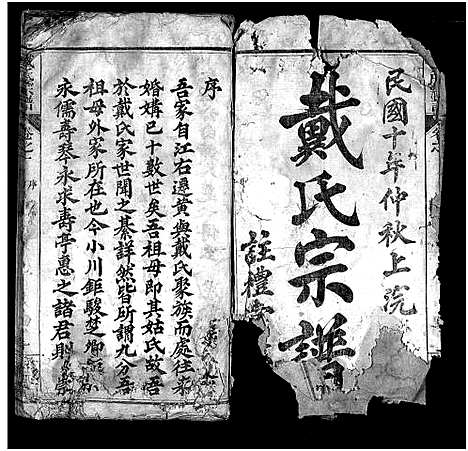 民國十年仲秋上浣
戴氏宗譜
註禮堂
序
吾家自江右遷黃與戴氏聚族而處往來
婚媾已十數世矣吾祖母即其姑氏故吾
於戴氏家世聞之綦詳然皆所謂九分吾
祖母外家所在也今小川鉅駿楚卿
永儒壽琴永求壽亭惠之諸君則